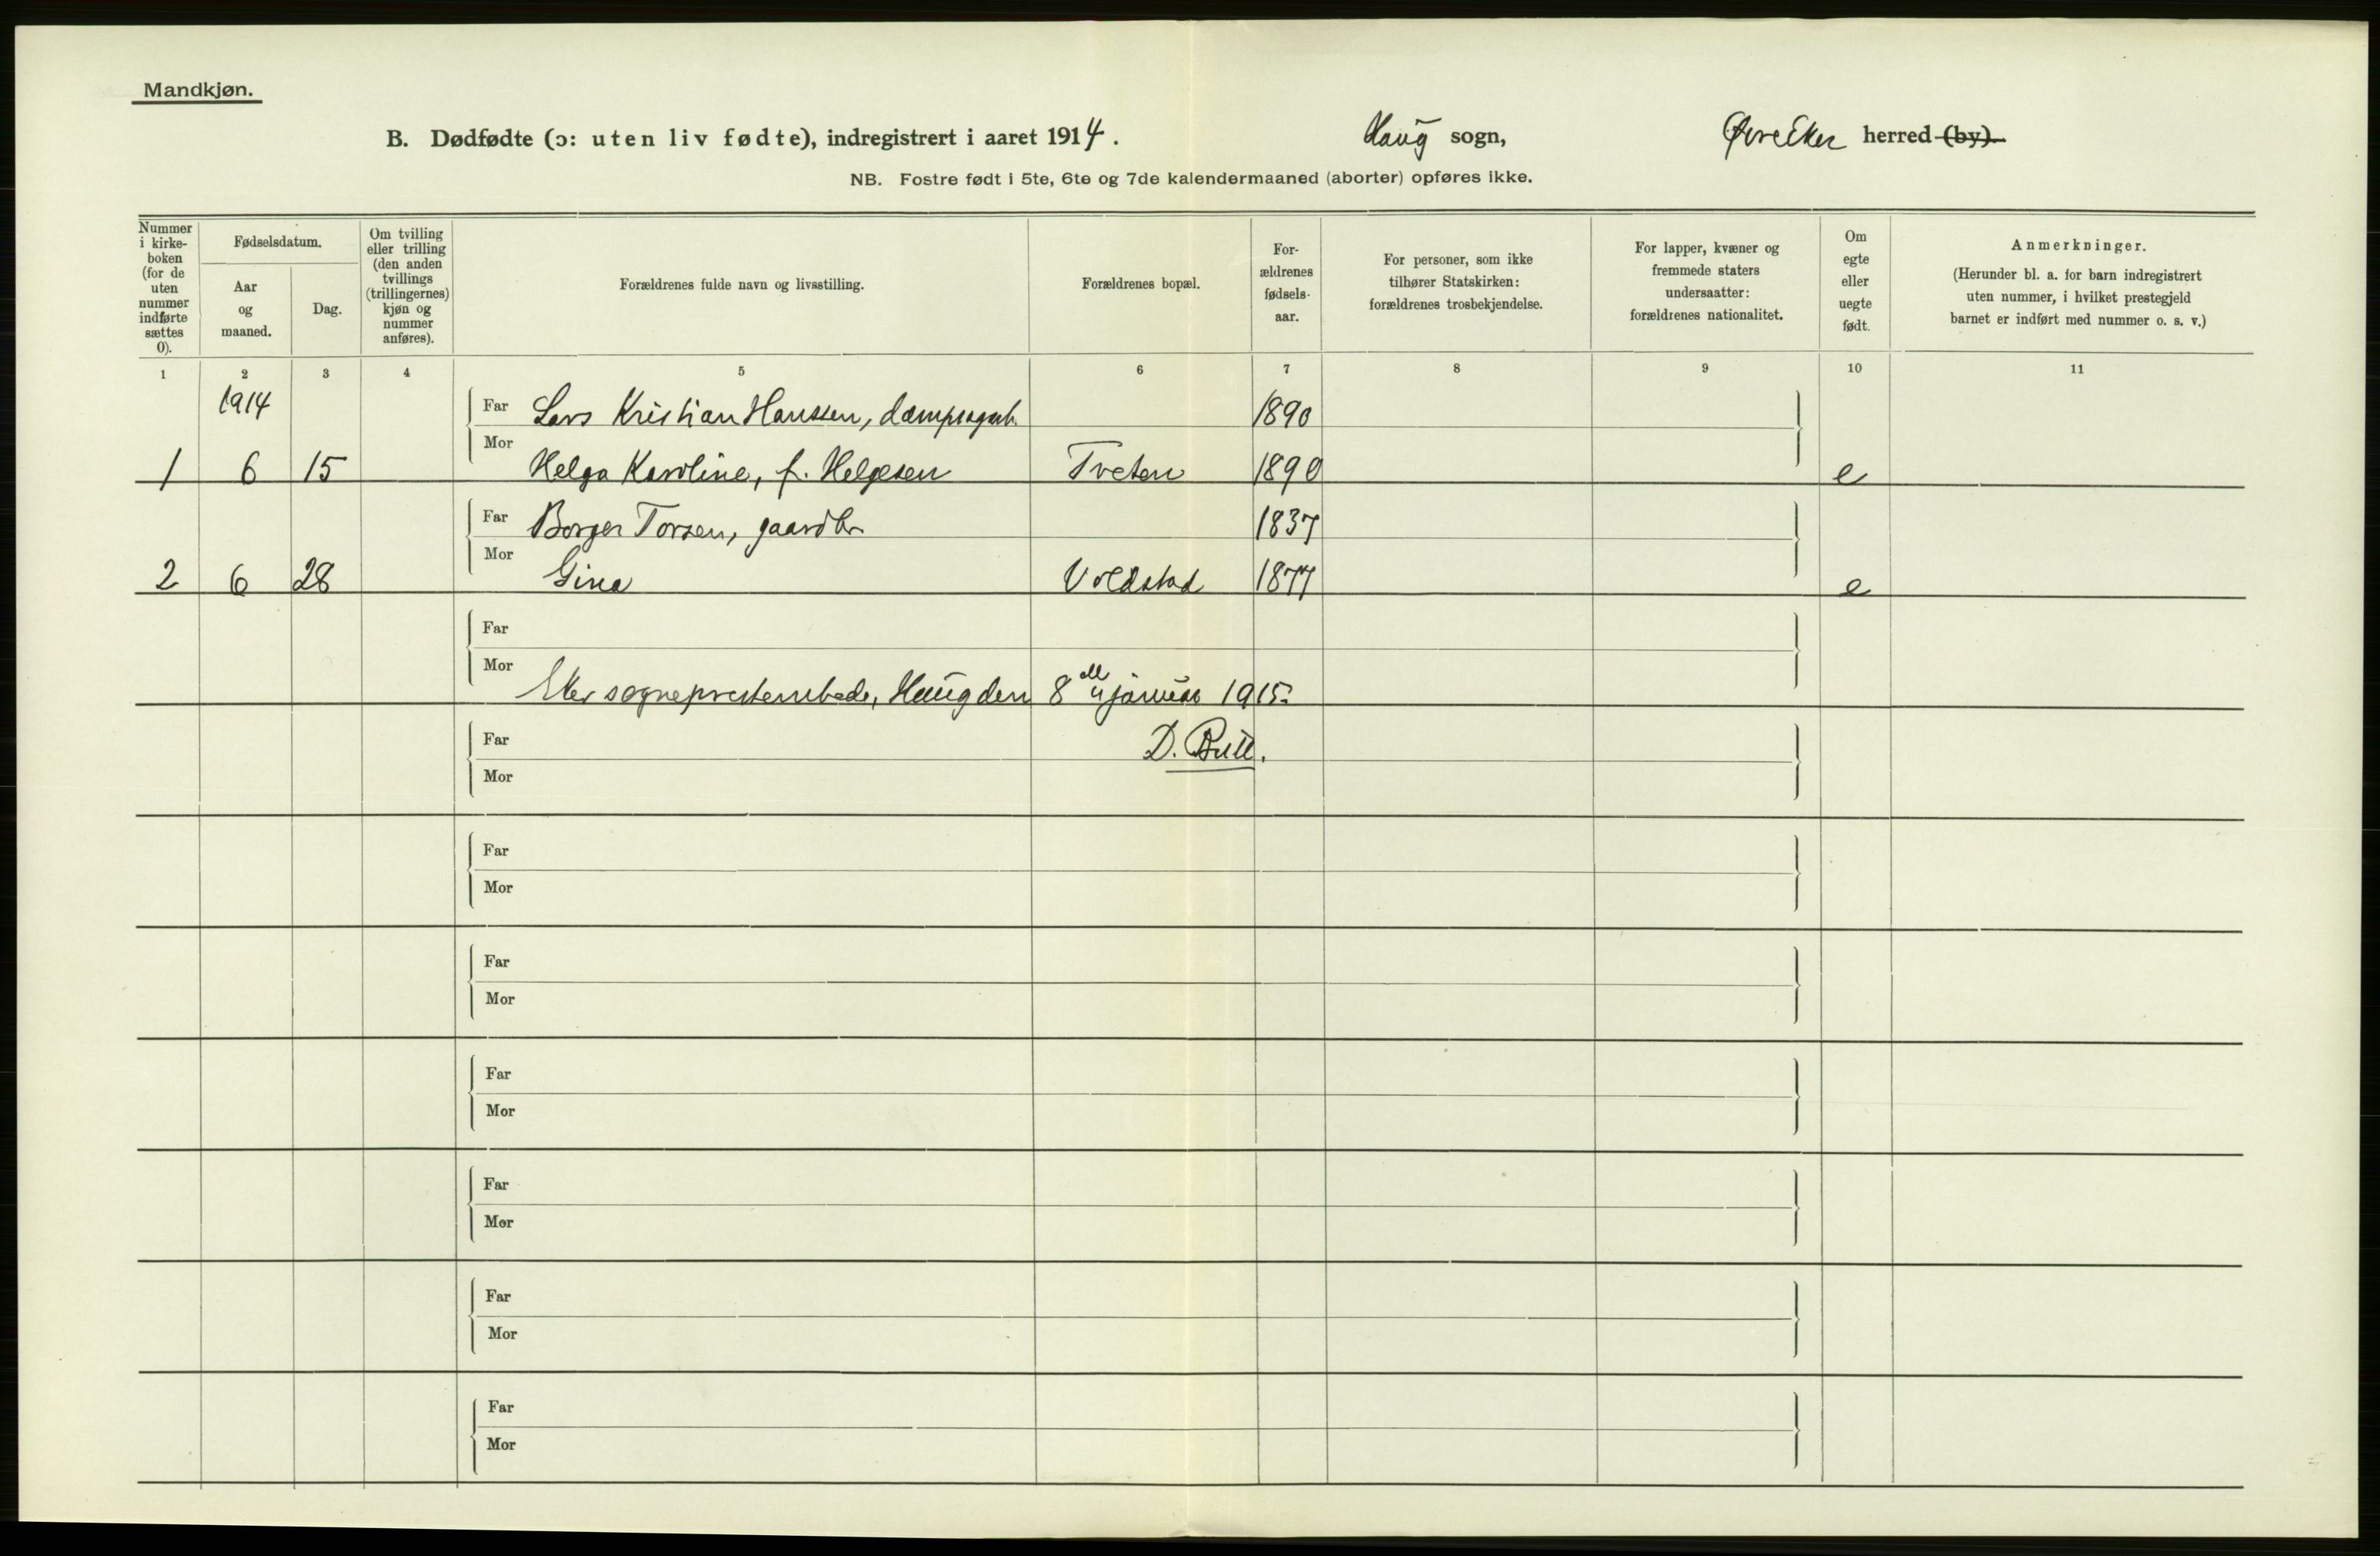 Mandkjøn.
B. Dødfødte (ɔ: uten liv fødte), indregistrert i aaret 1914. Haug sogn, Øvre Eker herred (by).
NB. Fostre født i 5te, 6te og 7de kalendermaaned (aborter) opføres ikke.
Nummer i kirke-boken (for de uten nummer indførte sættes 0).
Fødselsdatum.
Aar og maaned.
Dag.
Om tvilling eller trilling (den anden tvillings (trillingernes) kjøn og nummer anføres).
Forældrenes fulde navn og livsstilling.
Forældrenes bopæl.
For-ældrenes fødsels-aar.
For personer, som ikke tilhører Statskirken: forældrenes trosbekjendelse.
For lapper, kvæner og fremmede staters undersaatter: forældrenes nationalitet.
Om egte eller uegte født.
Anmerkninger.
(Herunder bl. a. for barn indregistrert uten nummer, i hvilket prestegjeld barnet er indført med nummer o. s. v.)
1 2 3 4 5 6 7 8 9 10 11
1914 Far Lars Kristian Hanssen, dampsagarb. 1890
1 6 15 Mor Helga Karoline, f. Helgesen Tveten 1890 e
Far Borger Torsen, gaardbr. 1837
2 6 28 Mor Gina Voldstad 1877 e
Far
Mor Eker sogneprestembede, Haug den 8de januar 1915.
Far D. Bull.
Mor
Far
Mor
Far
Mor
Far
Mor
Far
Mor
Far
Mor
Far
Mor